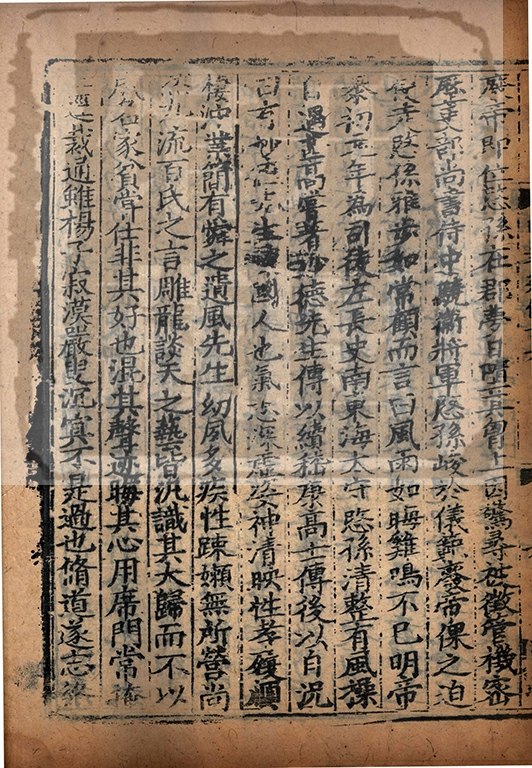 廢帝即位愍孫在郡夢日墮其胷上因驚尋被徵管機密
歷吏部尚書侍中驍衛將軍愍孫峻於儀範廢帝倮之迫
使走愍孫雅步如常顧而言曰風雨如晦雞鳴不已明帝
泰初元年為司徒左長史南東海太守愍孫清整有風操
自遇甚高嘗著妙德先生傳以續嵇康高士傳後以自況
曰有妙德先生陳國人也氣志深虛姿神清映性孝履順
棲沖業簡有舜之遺風先生幼夙多疾性踈嬾無所營尚
然九流百氏之言雕龍談天之藝皆汎識其大歸而不以
成名家貧嘗仕非其好也混其聲迹晦其心用席門常掩
三逕裁通雖楊子寂漠嚴叟沉冥不是過也脩道遂志終